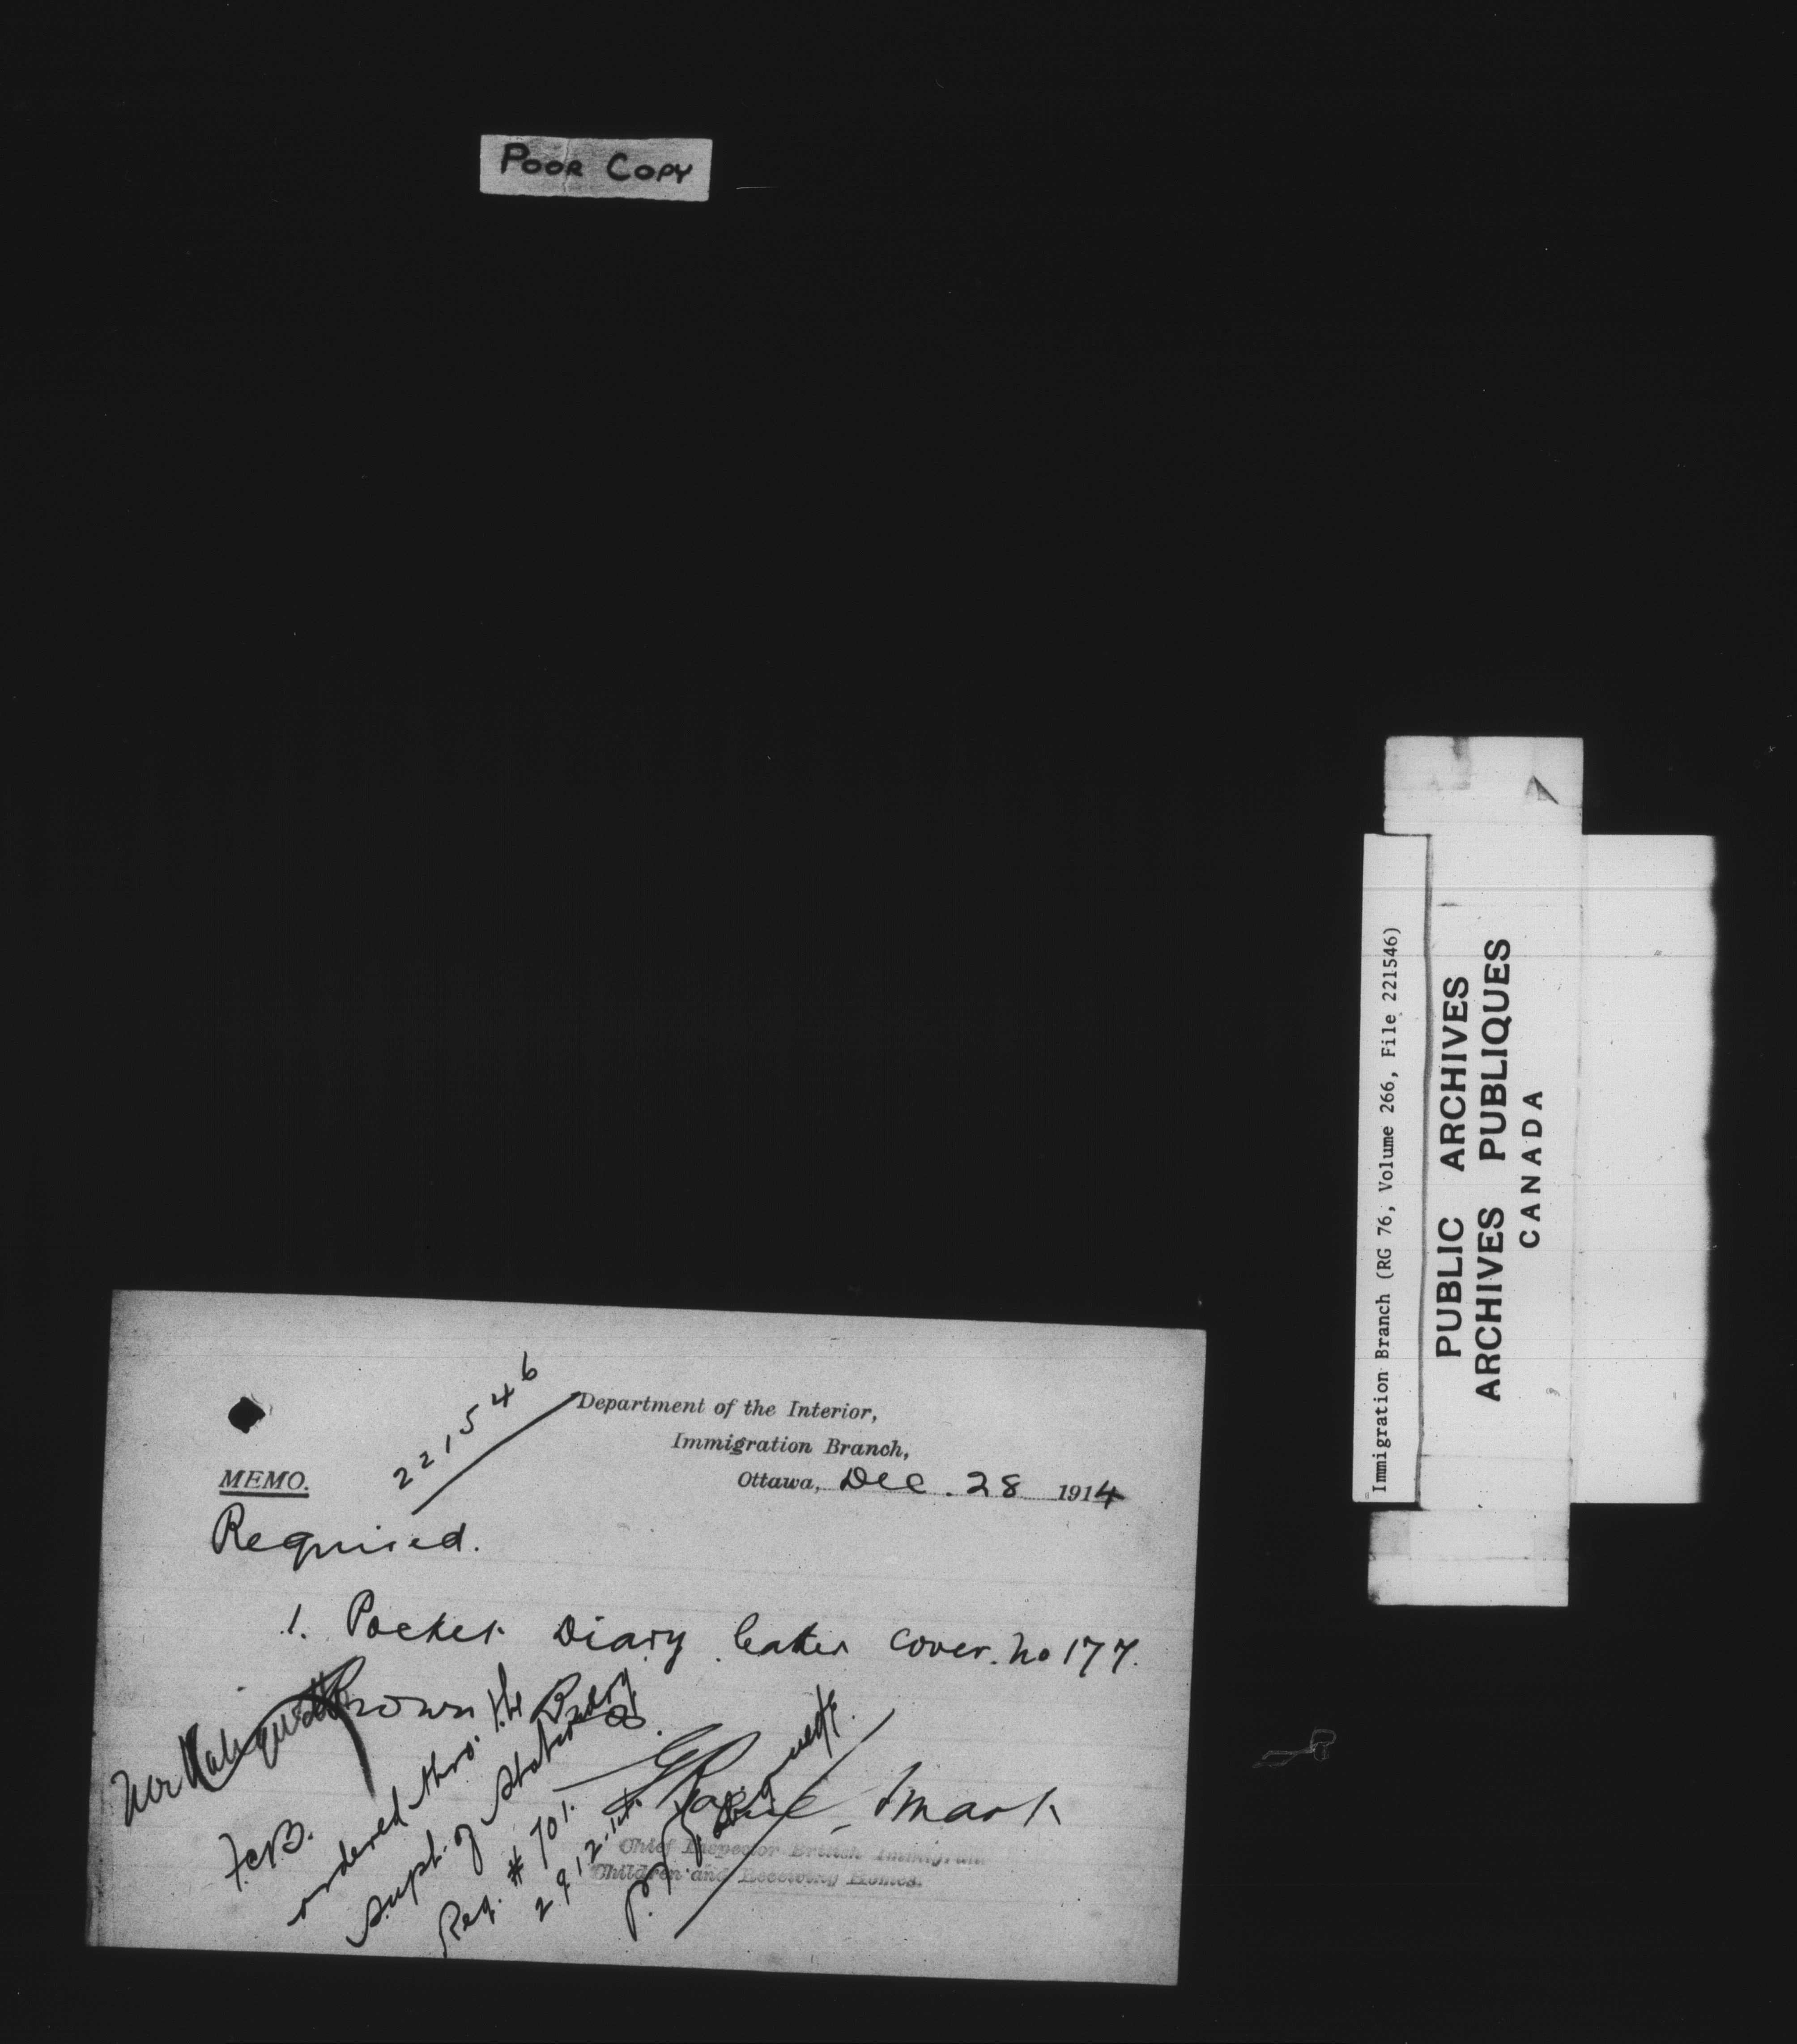 POOR COPY
221546
Department of the Interior,
Immigration Branch,
Ottawa, Dec. 28 1914
MEMO.
Required.
1. Pocket Diary leather cover. No 177.
Brown
F.C.B.
ordered thro. the
Supt. of Stationery
Req. # 701.
29.12.14.
G Bogue Smart
Chief Inspector British Immigrant
Children and Receiving Homes.
Immigration Branch (RG 76, Volume 266, File 221546)
PUBLIC ARCHIVES
ARCHIVES PUBLIQUES
CANADA